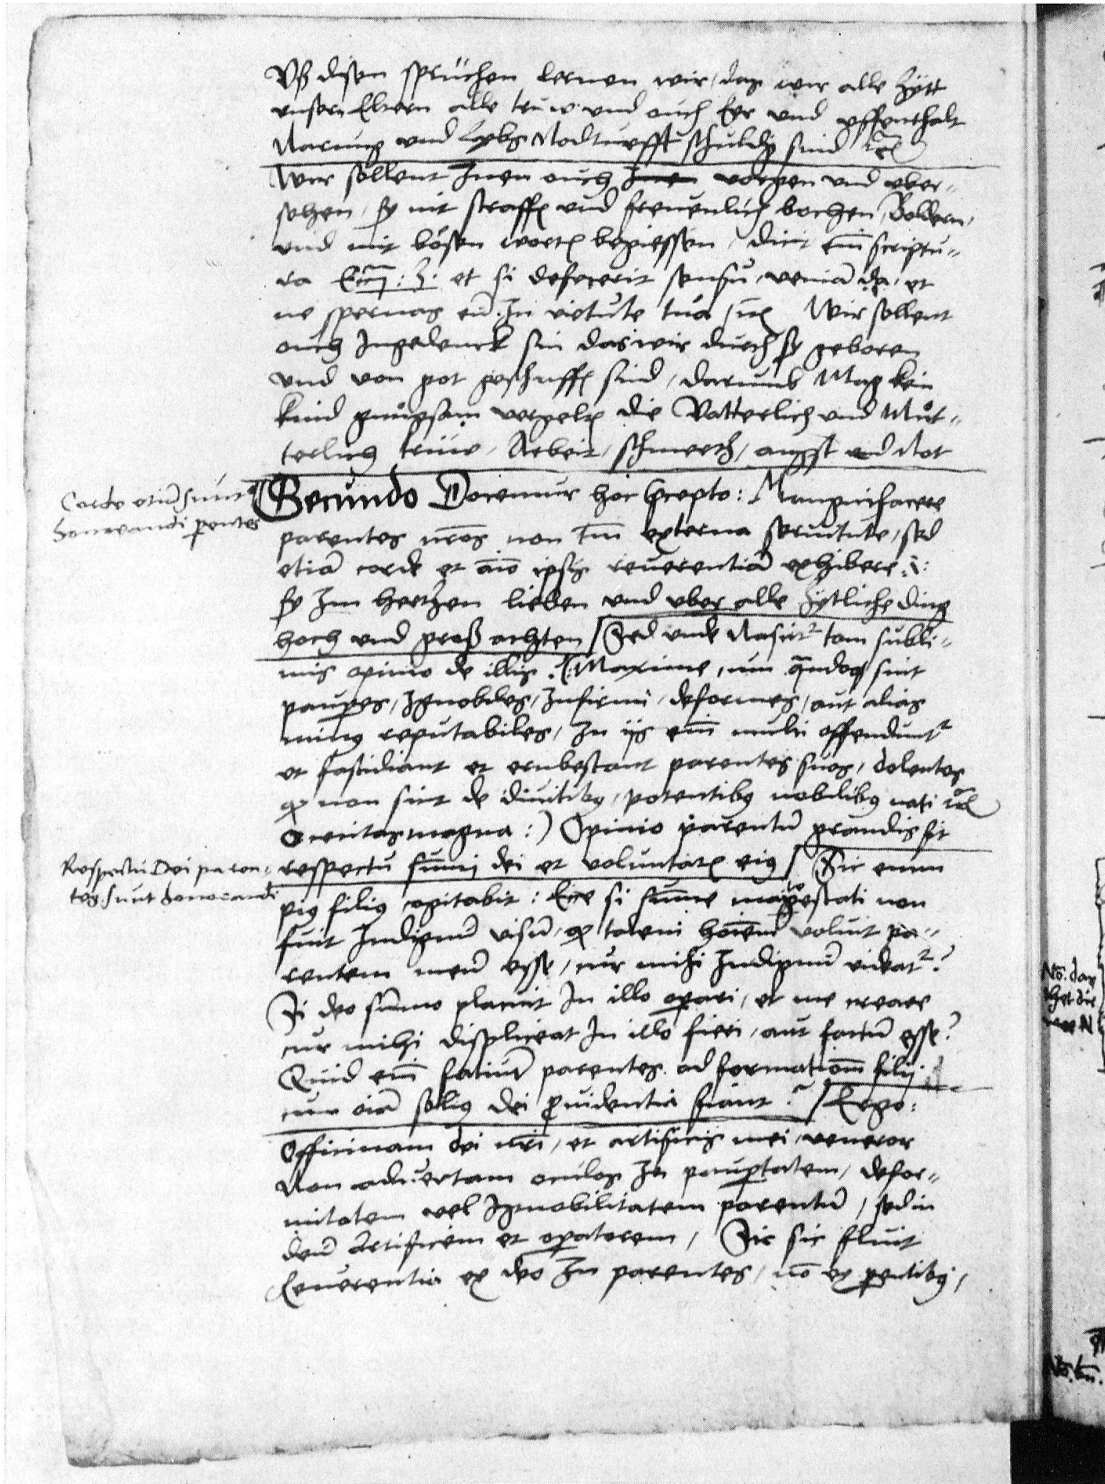 Uß disen sprüchen lernen wir / das wir alle Zytt
unsern Eltern alle truw und ouch Eer und uffenthalt
Narung und Lybs Nodturfft schuldig sind
Wir söllent Inen ouch Inen und uber-
sehen / sy nit straffen und frevenlich bochen / Boldern /
und mit bösen worten begiessen / dicit enim scriptu-
ra Ecci: 3: et si defecerit sensu, veniā da / et
ne spernas eū In virtute tua / Wir sollent
ouch Ingedenck sin das wir durch sy geboren
und von got geschaffen sind / darumb Mag kein
kind gnügsam vergelten die Vatterlich und Mut-
terlich trüw / Arbeit / schmertz / angst und Not
Corde etiā sunt
honorandi pentes
Secundo Docemur hoc precepto: Magnifacere
parentes nr̄os non tm̄ externa servitute / sed
etiā corde et aīo ipsis reverentiā exhibere .i:
sy Im hertzen lieben und uber alle Zytliche ding
hoch und groß achten / Sed unde Nascitr tam subli-
mis opinio de illis. (: Maxime, cum sint
paupes, Ignobiles, Infirmi, deformes, aut alias
minus reputabiles, In iis enī multi offenduntr
et fastidiant et erubescant parentes suos, dolentes
non sint de divitibus, potentibus nobilibus nati
magna :) Opinio parentū grandis sit
Respectu Dei paren-
tes sunt honorandi
respectu sum̄i dei et voluntaten eius / Sic enim
pius filius cogitabit: Ecce si sum̄e magestati non
fuit Indignū visū, talem hoīem voluit pa-
rentem meū esse, cur mihi Indignū videatr?
Si deo sūmo placuit In illo operari, et me creare
cur mihi displiceat In illo fieri, aut factū esse?
Quid enī faciunt parentes ad formationem filii
cum oīa solius dei providentia fiant? / Ergo:
Officinam dei nr̄i, et artificis mei, veneror
Non advertam oculos In paupertatem, defor-
mitatem vel Ignobilitatem parentū, sed in
deū Artificem et operatorem, Sic sic fluit
Reverentia ex deo In parentes, nō ex pentibus,
Nō. das